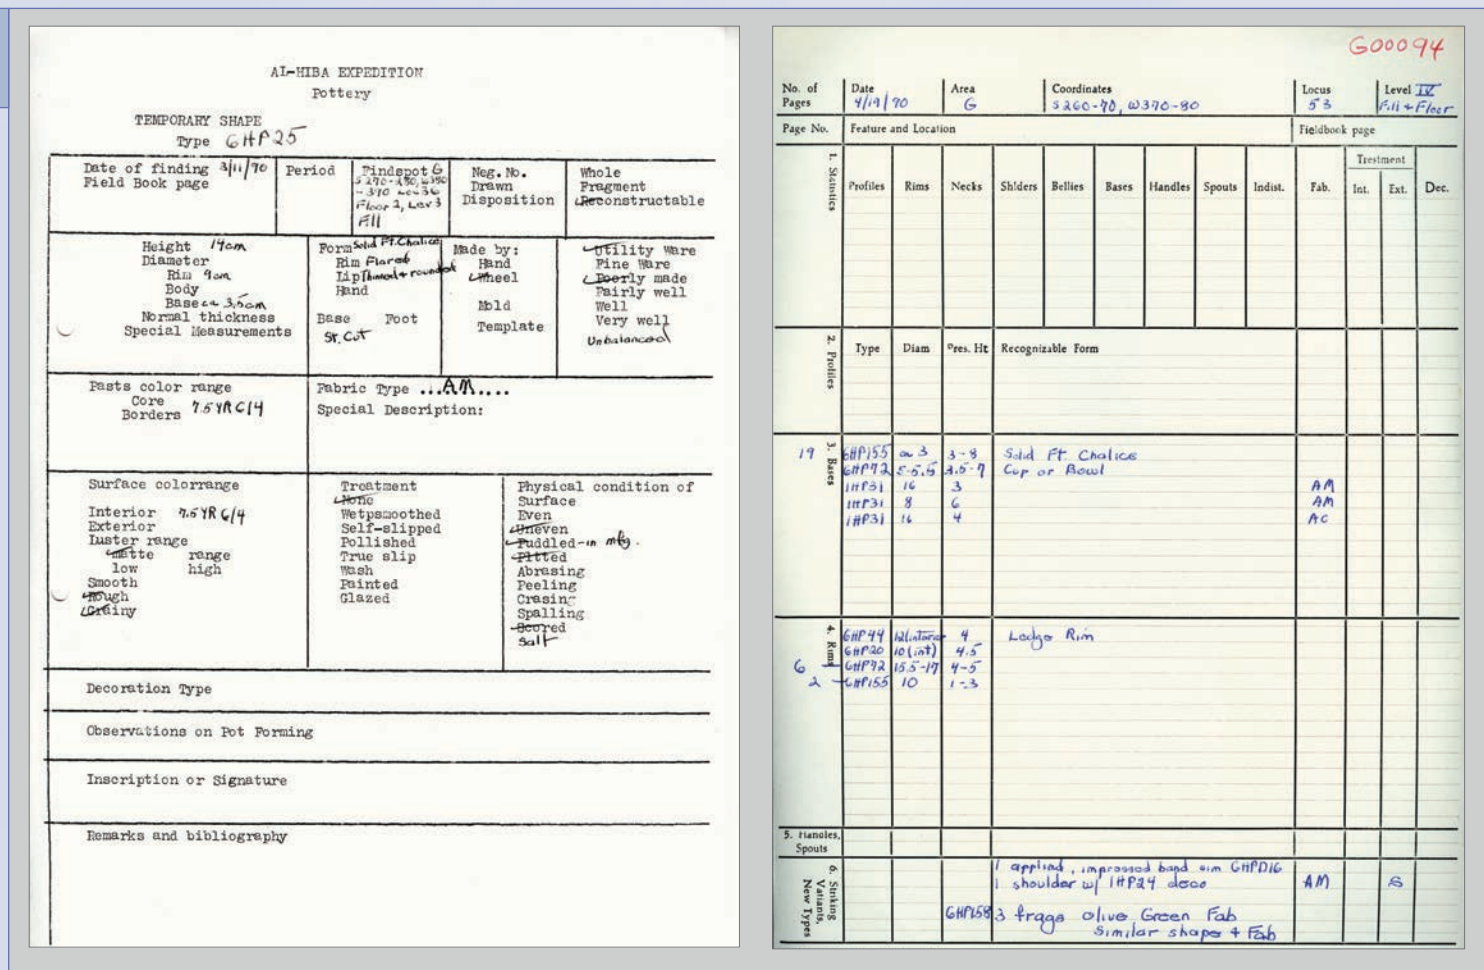 AL-HIBA EXPEDITION
Pottery
TEMPORARY SHAPE
Type GHP25
Date of finding 3/11/70
Field Book page
Period
Findspot G
Floor 2, Lev 3
Fill
Neg. No.
Drawn
Disposition
Whole
Fragment
Reconstructable
Height 14cm
Diameter
Rim 9cm
Body
Base ca 3.5cm
Normal thickness
Special Measurements
Form Solid Ft. Chalice
Rim Flared
Lip Thinned + rounded
Hand
Base Foot
St. Cut
Made by:
Hand
Wheel
Mold
Template
Utility Ware
Fine Ware
Poorly made
Fairly well
Well
Very well
Unbalanced
Pasts color range
Core
Borders 7.5YR 6/4
Fabric Type ...AM....
Special Description:
Surface colorrange
Interior 7.5YR 6/4
Exterior
Luster range
matte range
low high
Smooth
Rough
Grainy
Treatment
None
Wetpsmoothed
Self-slipped
Pollished
True slip
Wash
Painted
Glazed
Physical condition of
Surface
Even
Uneven
Puddled-in mfg.
Pitted
Abrasing
Peeling
Crasing
Spalling
Scored
Salt
Decoration Type
Observations on Pot Forming
Inscription or Signature
Remarks and bibliography
G00094
No. of Pages
Date 4/19/70
Area G
Coordinates S260-70, W370-80
Locus 53
Level IV Fill + Floor
Page No. Feature and Location Fieldbook page
1. Statistics
Profiles Rims Necks Shlders Bellies Bases Handles Spouts Indist. Fab.
Treatment
Int. Ext. Dec.
2. Profiles
Type Diam Pres. Ht Recognizable Form
3. Bases
19 GHP155 ca 3 3-8 Solid Ft Chalice
GHP72 5-5.5 3.5-7 Cup or Bowl
1HP31 16 3 AM
1HP31 8 6 AM
1HP31 16 4 AC
4. Rims
GHP44 12(interior 4 Ledge Rim
GHP20 10(int) 4.5
6 GHP72 15.5-17 4-5
2 GHP155 10 1-3
5. Handles, Spouts
6. Striking Vatiants, New Types
1 applied, impressed band sim GHPD16
1 shoulder w/ 1HP24 deco AM S
GHP158 3 frags olive Green Fab
Similar shape + Fab